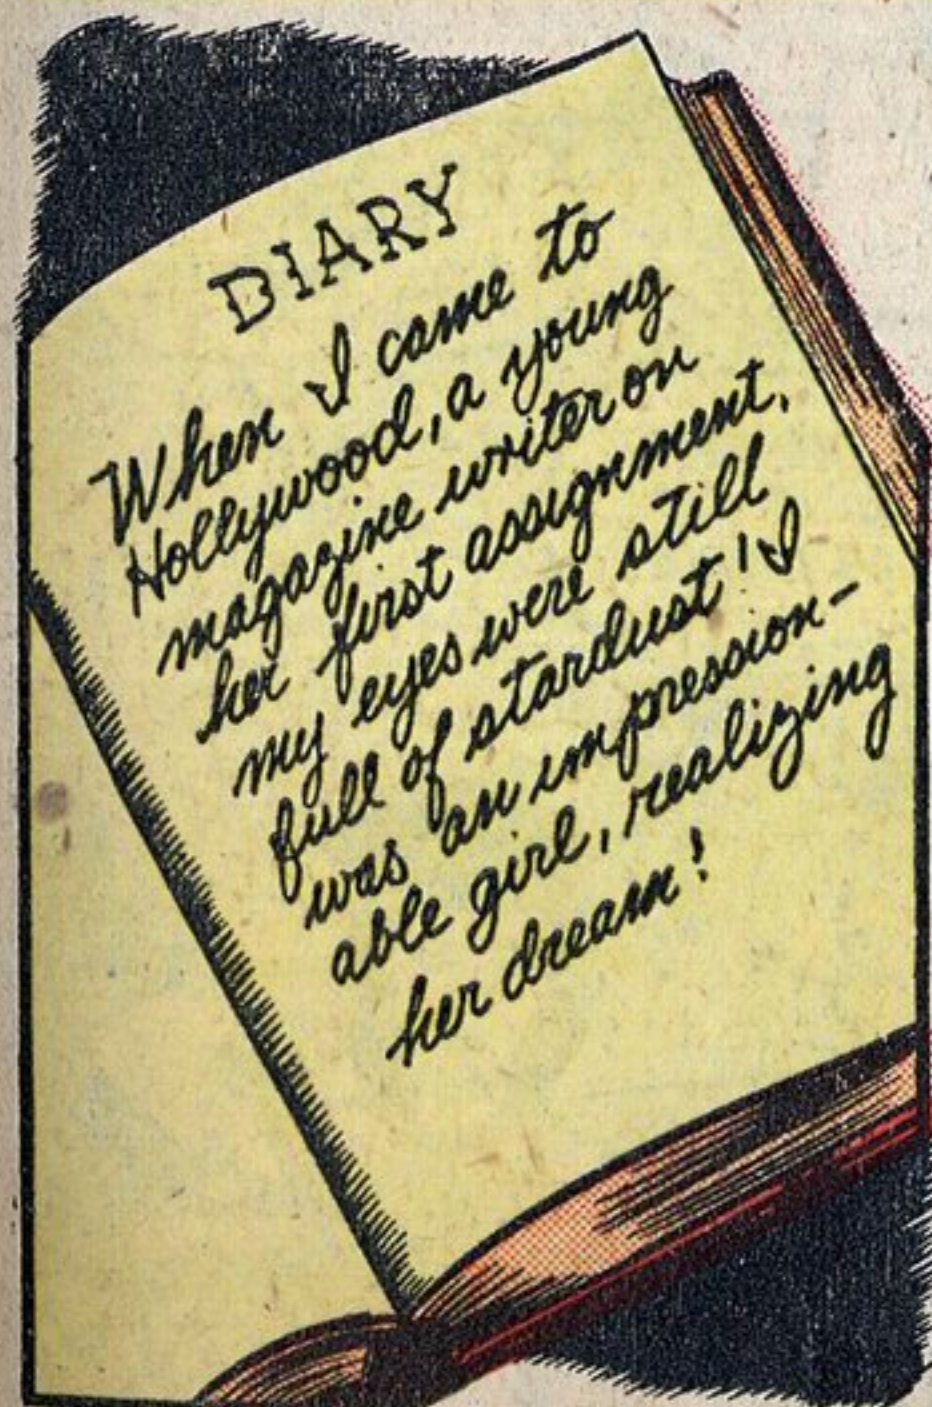 DIARY
When I came to
Hollywood, a young
magazine writer on
her first assignment,
my eyes were still
full of stardust! I
was an impression-
able girl, realizing
her dream!